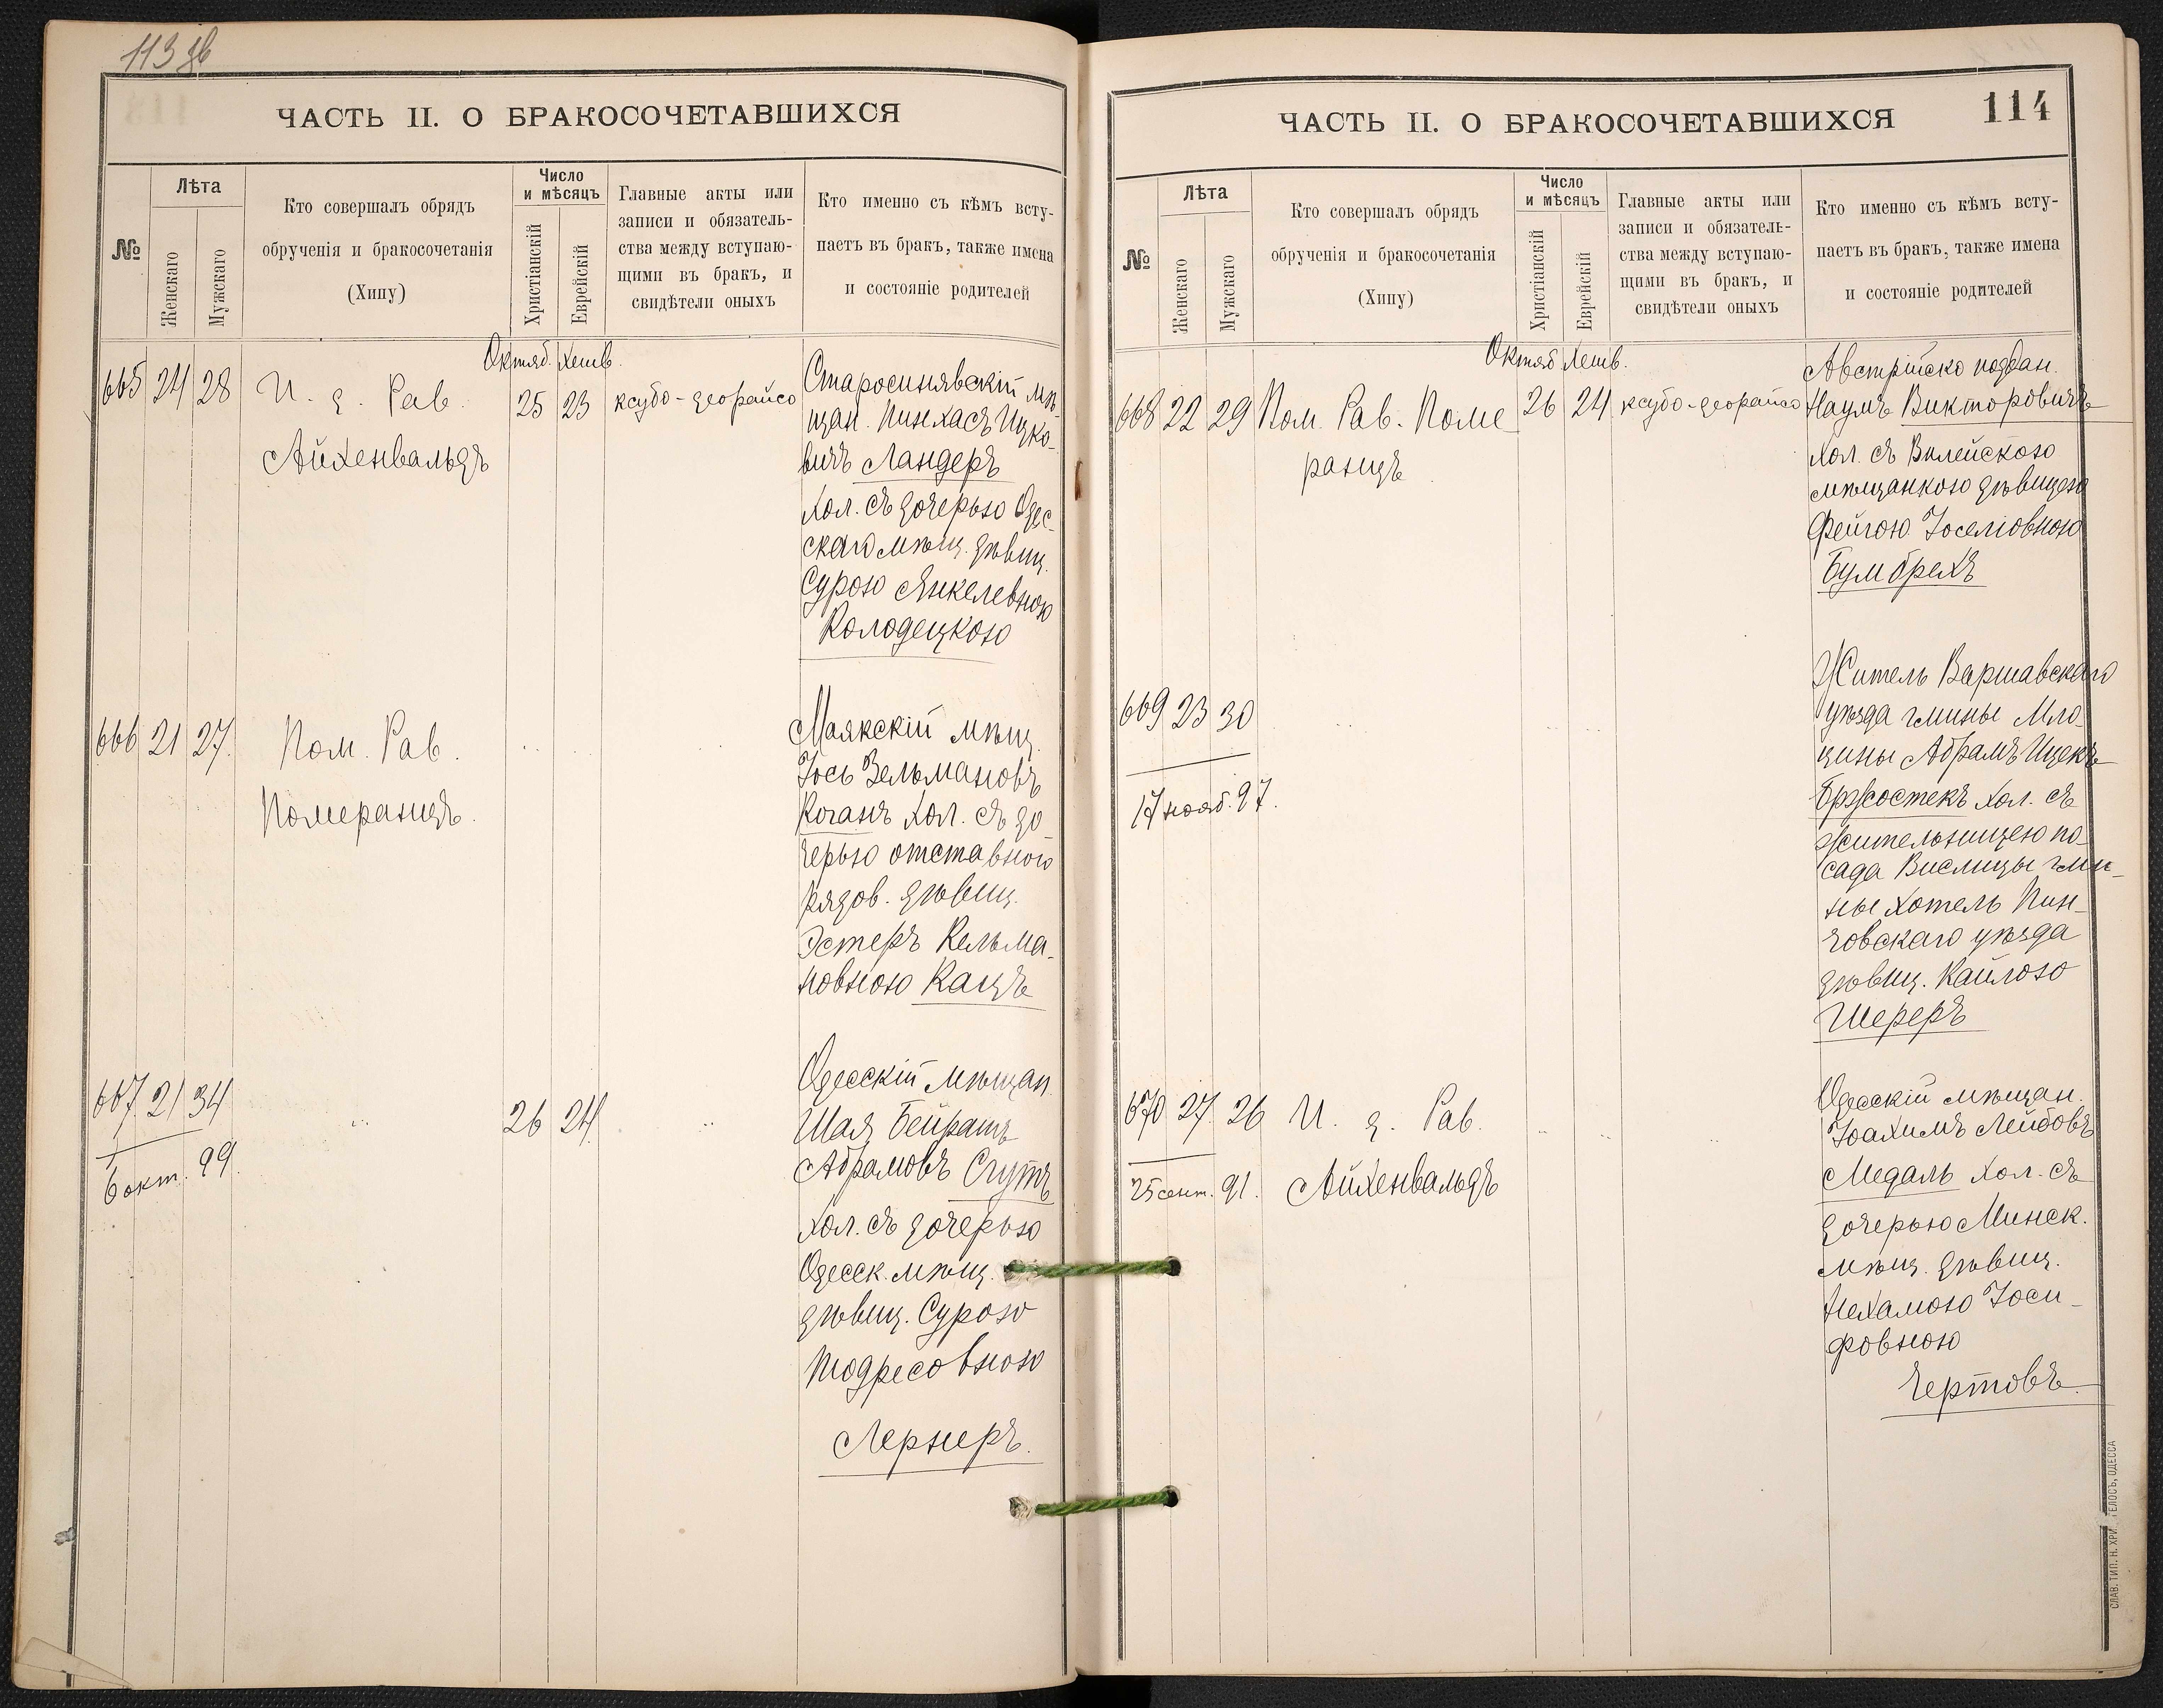 113 об
ЧАСТЬ II. О БРАКОСОЧЕТАВШИХСЯ
№
Лѣта
Женскаго
Мужскаго
Кто совершалъ обрядъ
обрученія и бракосочетанія
(Хипу)
Число
и мѣсяцъ
Христіанскій
Еврейскій
Главные акты или
записи и обязатель-
ства между вступаю-
щими въ бракъ, и
свидѣтели оныхъ
Кто именно съ кѣмъ всту-
паетъ въ бракъ, также имена
и состояніе родителей
Октяб. Хешв.
665 24 28 И. д. Рав. 25 23 ксубо-деорайсо
Айхенвальдъ
Старосинявскій мѣ-
щан. Пинхасъ Ицко-
вичъ Ландеръ
хол. съ дочерью Одес-
скаго мѣщ. дѣвиц.
Сурою Янкелевною
Колодецкою
666 21 27. Пом. Рав.
Померанцъ.
Маякскій мѣщ.
Іось Зельмановъ
Коганъ хол. съ до-
черью отставного
рядов. дѣвиц.
Эстеръ Кельма-
новною Кацъ
667 21 34 " 26 24. "
6 окт. 99.
Одесскій мѣщан.
Шая Бейрашъ
Абрамовъ Слутъ
хол. съ дочерью
Одесск. мѣщ.
дѣвиц. Сурою
Тодресовною
Лернеръ.
ЧАСТЬ II. О БРАКОСОЧЕТАВШИХСЯ
114
№
Лѣта
Женскаго
Мужскаго
Кто совершалъ обрядъ
обрученія и бракосочетанія
(Хипу)
Число
и мѣсяцъ
Христіанскій
Еврейскій
Главные акты или
записи и обязатель-
ства между вступаю-
щими въ бракъ, и
свидѣтели оныхъ
Кто именно съ кѣмъ всту-
паетъ въ бракъ, также имена
и состояніе родителей
Октяб Хешв.
668 22 29 Пом. Рав. Поме 26 24 ксубо-деорайсо
ранцъ
Австрійско поддан.
Наумъ Викторовичъ
хол. съ Вилейскою
мѣщанкою дѣвицею
Фейгою Іоселіовною
Бумбрехъ
669 23 30
17 нояб. 97.
Житель Варшавскаго
уѣзда гмины Мло-
цины Абрамъ Ицекъ
Бржостекъ хол. съ
жительницею по-
сада Вислицы гми-
ны Хотель Пин-
човскаго уѣзда
дѣвиц. Кайлою
Шереръ
670 27. 26 И. д. Рав.
25 сент. 91. Айхенвальдъ
Одесскій мѣщан.
Іоахимъ Лейбовъ
Медаль хол. съ
дочерью Минск.
мѣщ. дѣвиц.
Нехамою Іоси-
фовною
Чертовъ.
СЛАВ. ТИП. Н. ХРИ ГЕЛОСЪ, ОДЕССА